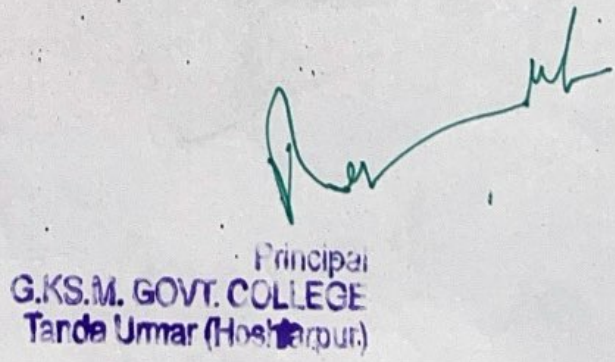 Principal
G.KS.M. GOVT. COLLEGE
Tanda Urmar (Hoshiarpur)